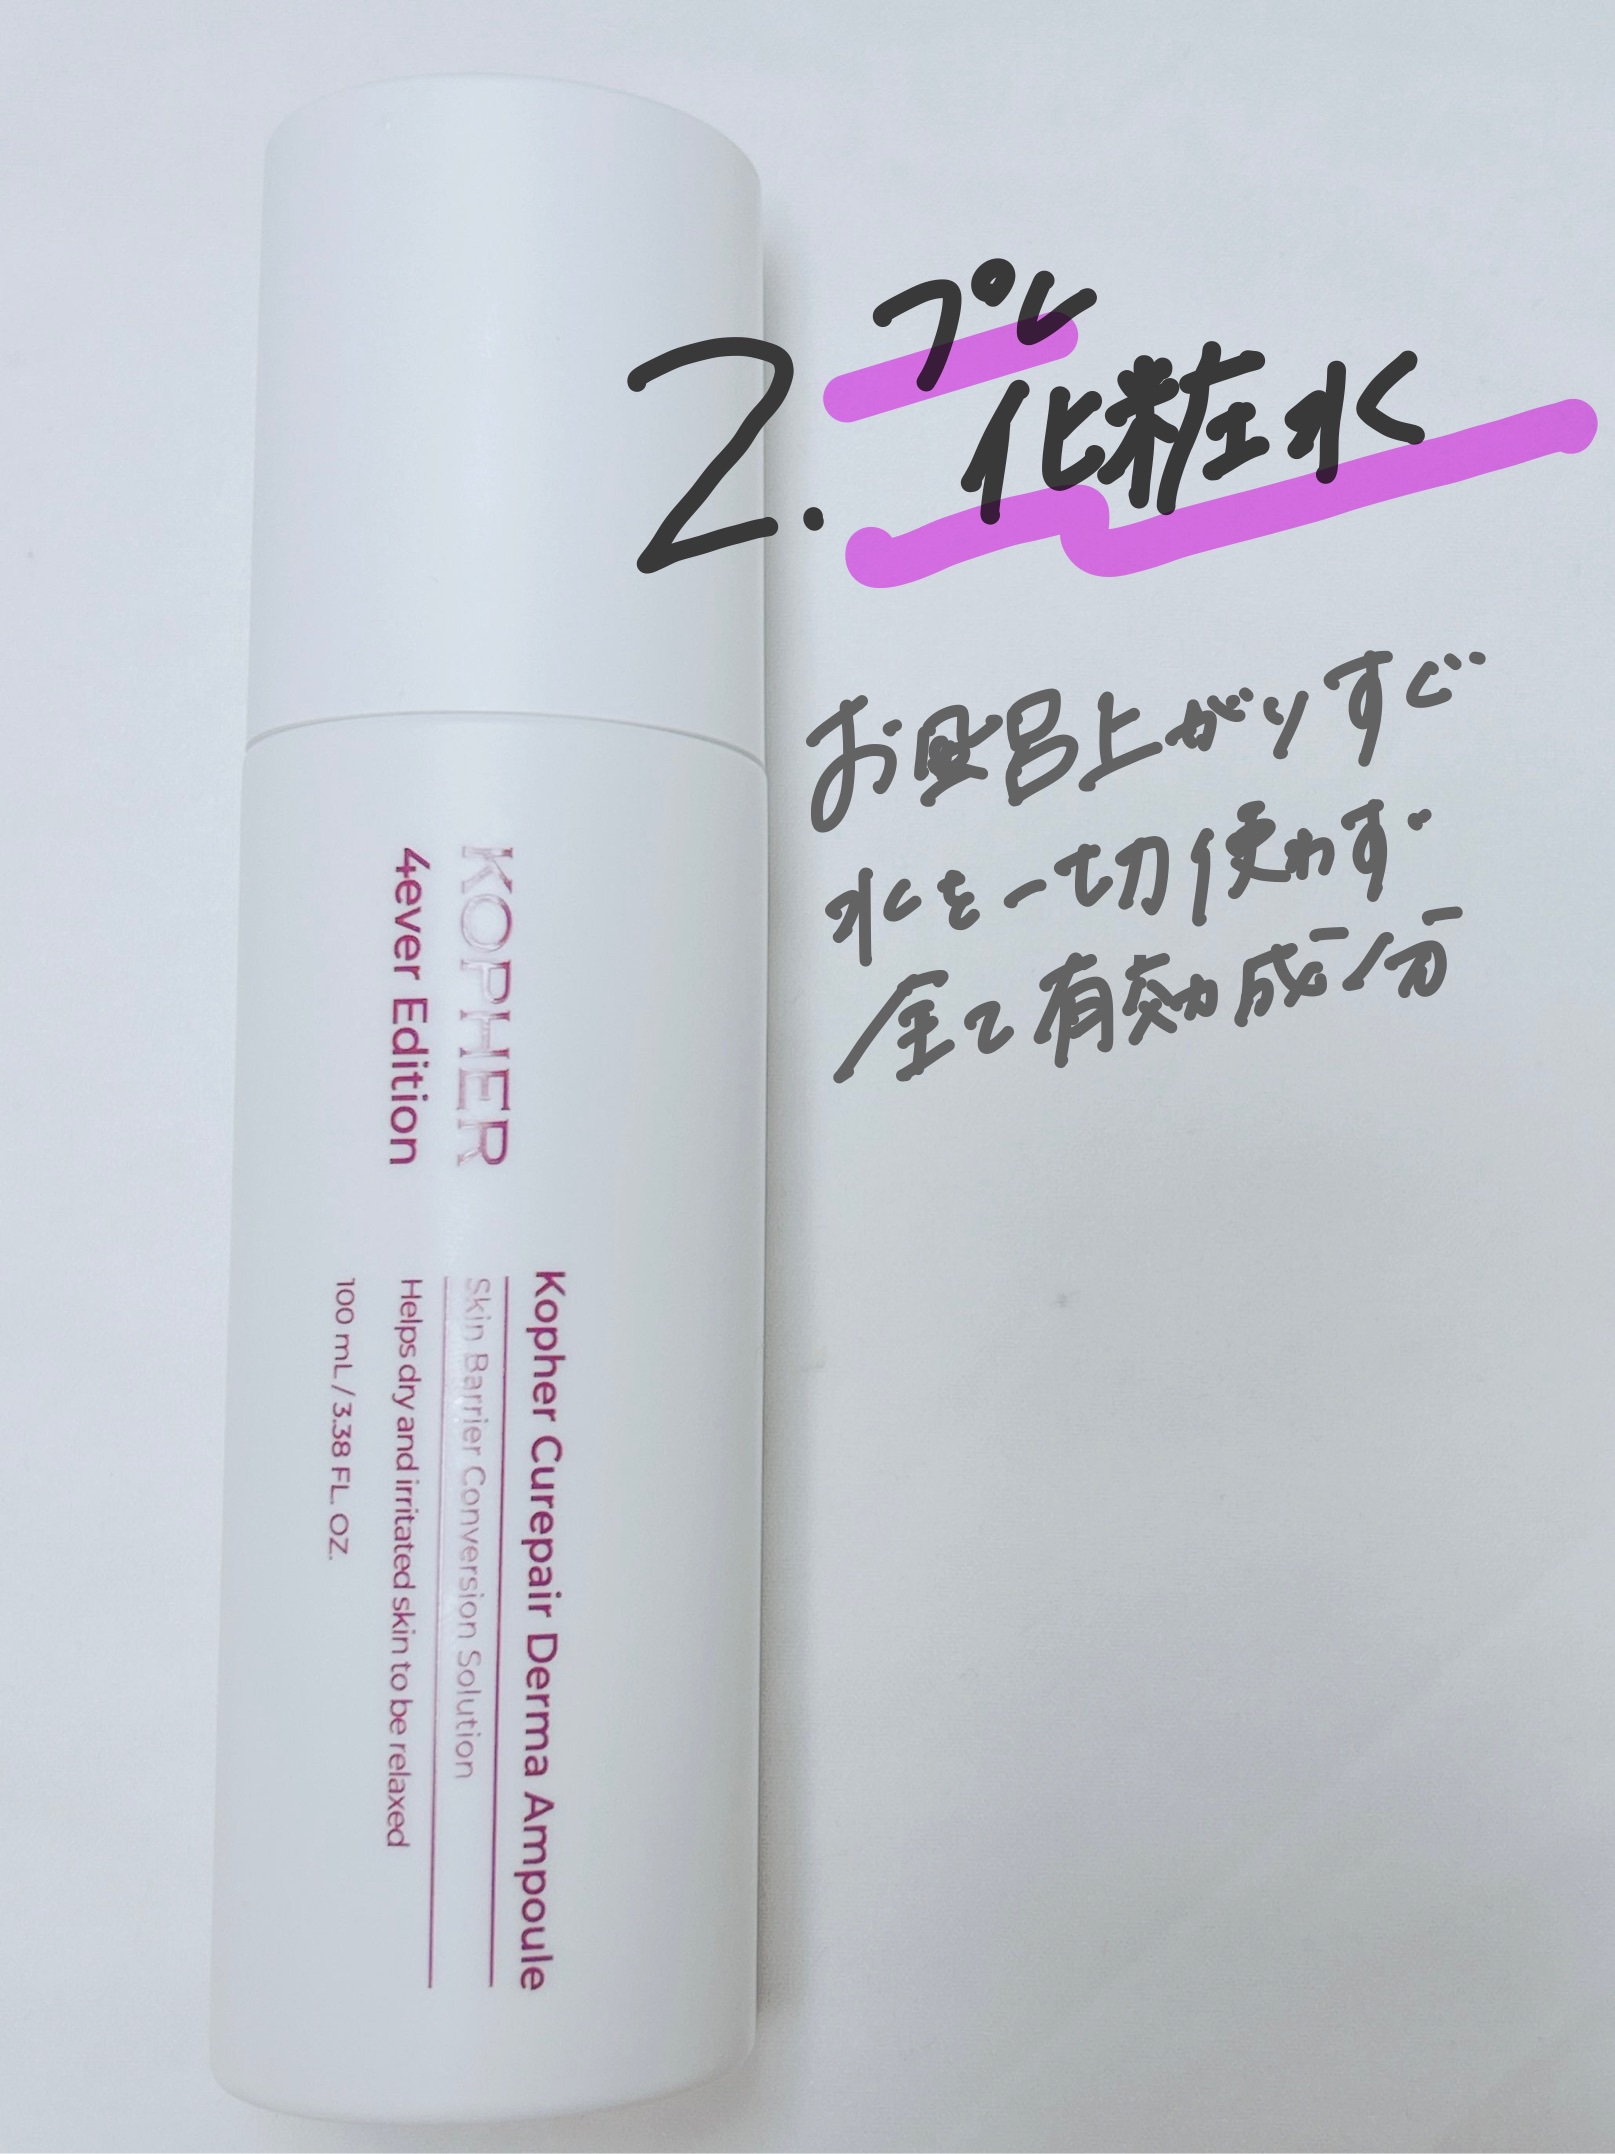 2. プレ
化粧水
お風呂上がりすぐ
水を一切使わず
全て有効成分
KOPHER
4ever Edition
Kopher Curepair Derma Ampoule
Skin Barrier Conversion Solution
Helps dry and irritated skin to be relaxed
100 mL / 3.38 FL. OZ.